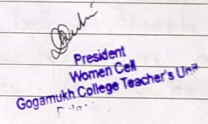 President
Women Cell
Gogamukh College Teacher's Unit